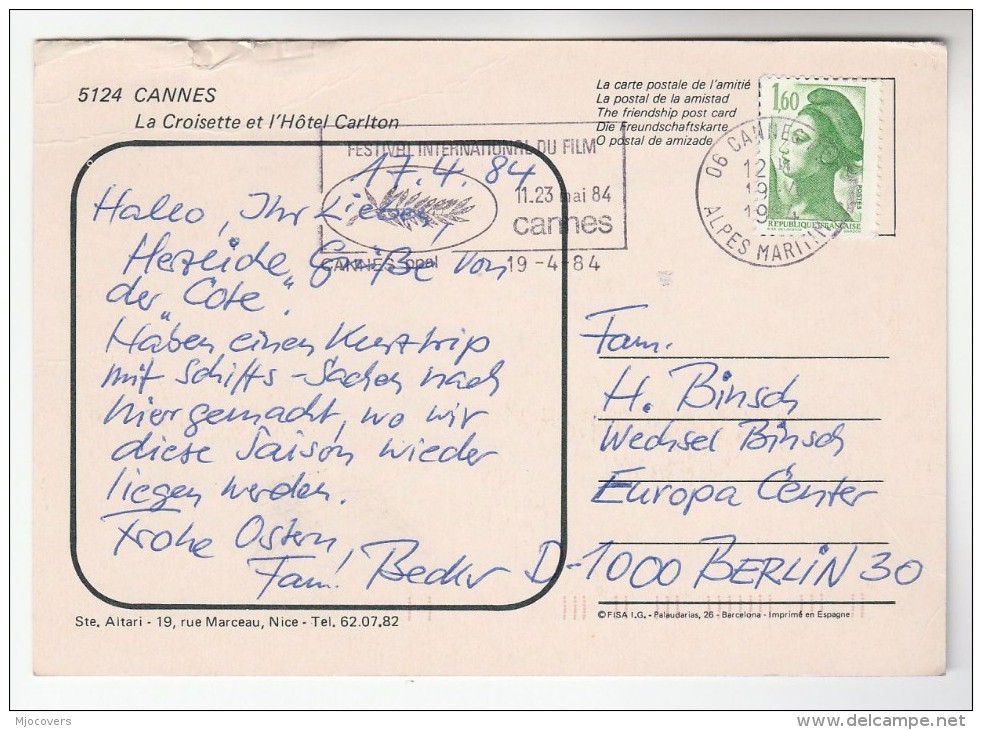 5124 CANNES
La Croisette et l'Hôtel Carlton
La carte postale de l'amitié
La postal de la amistad
The friendship post card
Die Freundschaftskarte
O postal de amizade
1,60
POSTES
REPUBLIQUE FRANÇAISE
06 CANNES
12 H
19-4
19 4
ALPES MARITIMES
FESTIVAL INTERNATIONAL DU FILM
11.23 mai 84
cannes
CANNES ppal 19-4-84
17.4.84
Hallo, Ihr Lieben,
Herzliche Grüße von
der "Côte".
Haben einen Kurztrip
mit Schiffs-Sachen nach
hier gemacht, wo wir
diese Saison wieder
liegen werden.
Frohe Ostern,
Fam. Becker
Fam.
H. Binsch
Wechsel Binsch
Europa Center
D-1000 BERLIN 30
Ste. Altari - 19, rue Marceau, Nice - Tel. 62.07.82
© FISA I.G. - Palaudarias, 26 - Barcelona - Imprimé en Espagne
Mjocovers
delcampe.net